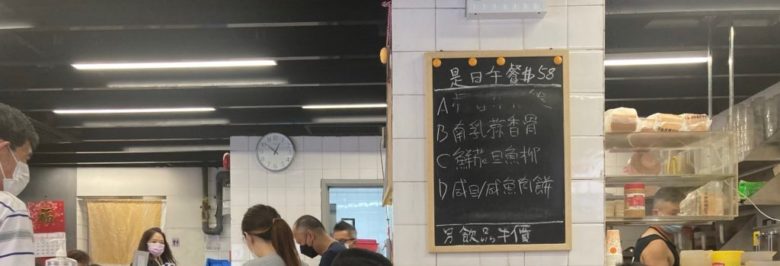 是日午餐$58
A
B 南乳蒜香骨
C 鮮茄旦魚柳
D 咸旦/咸魚肉餅
另飲品半價
福